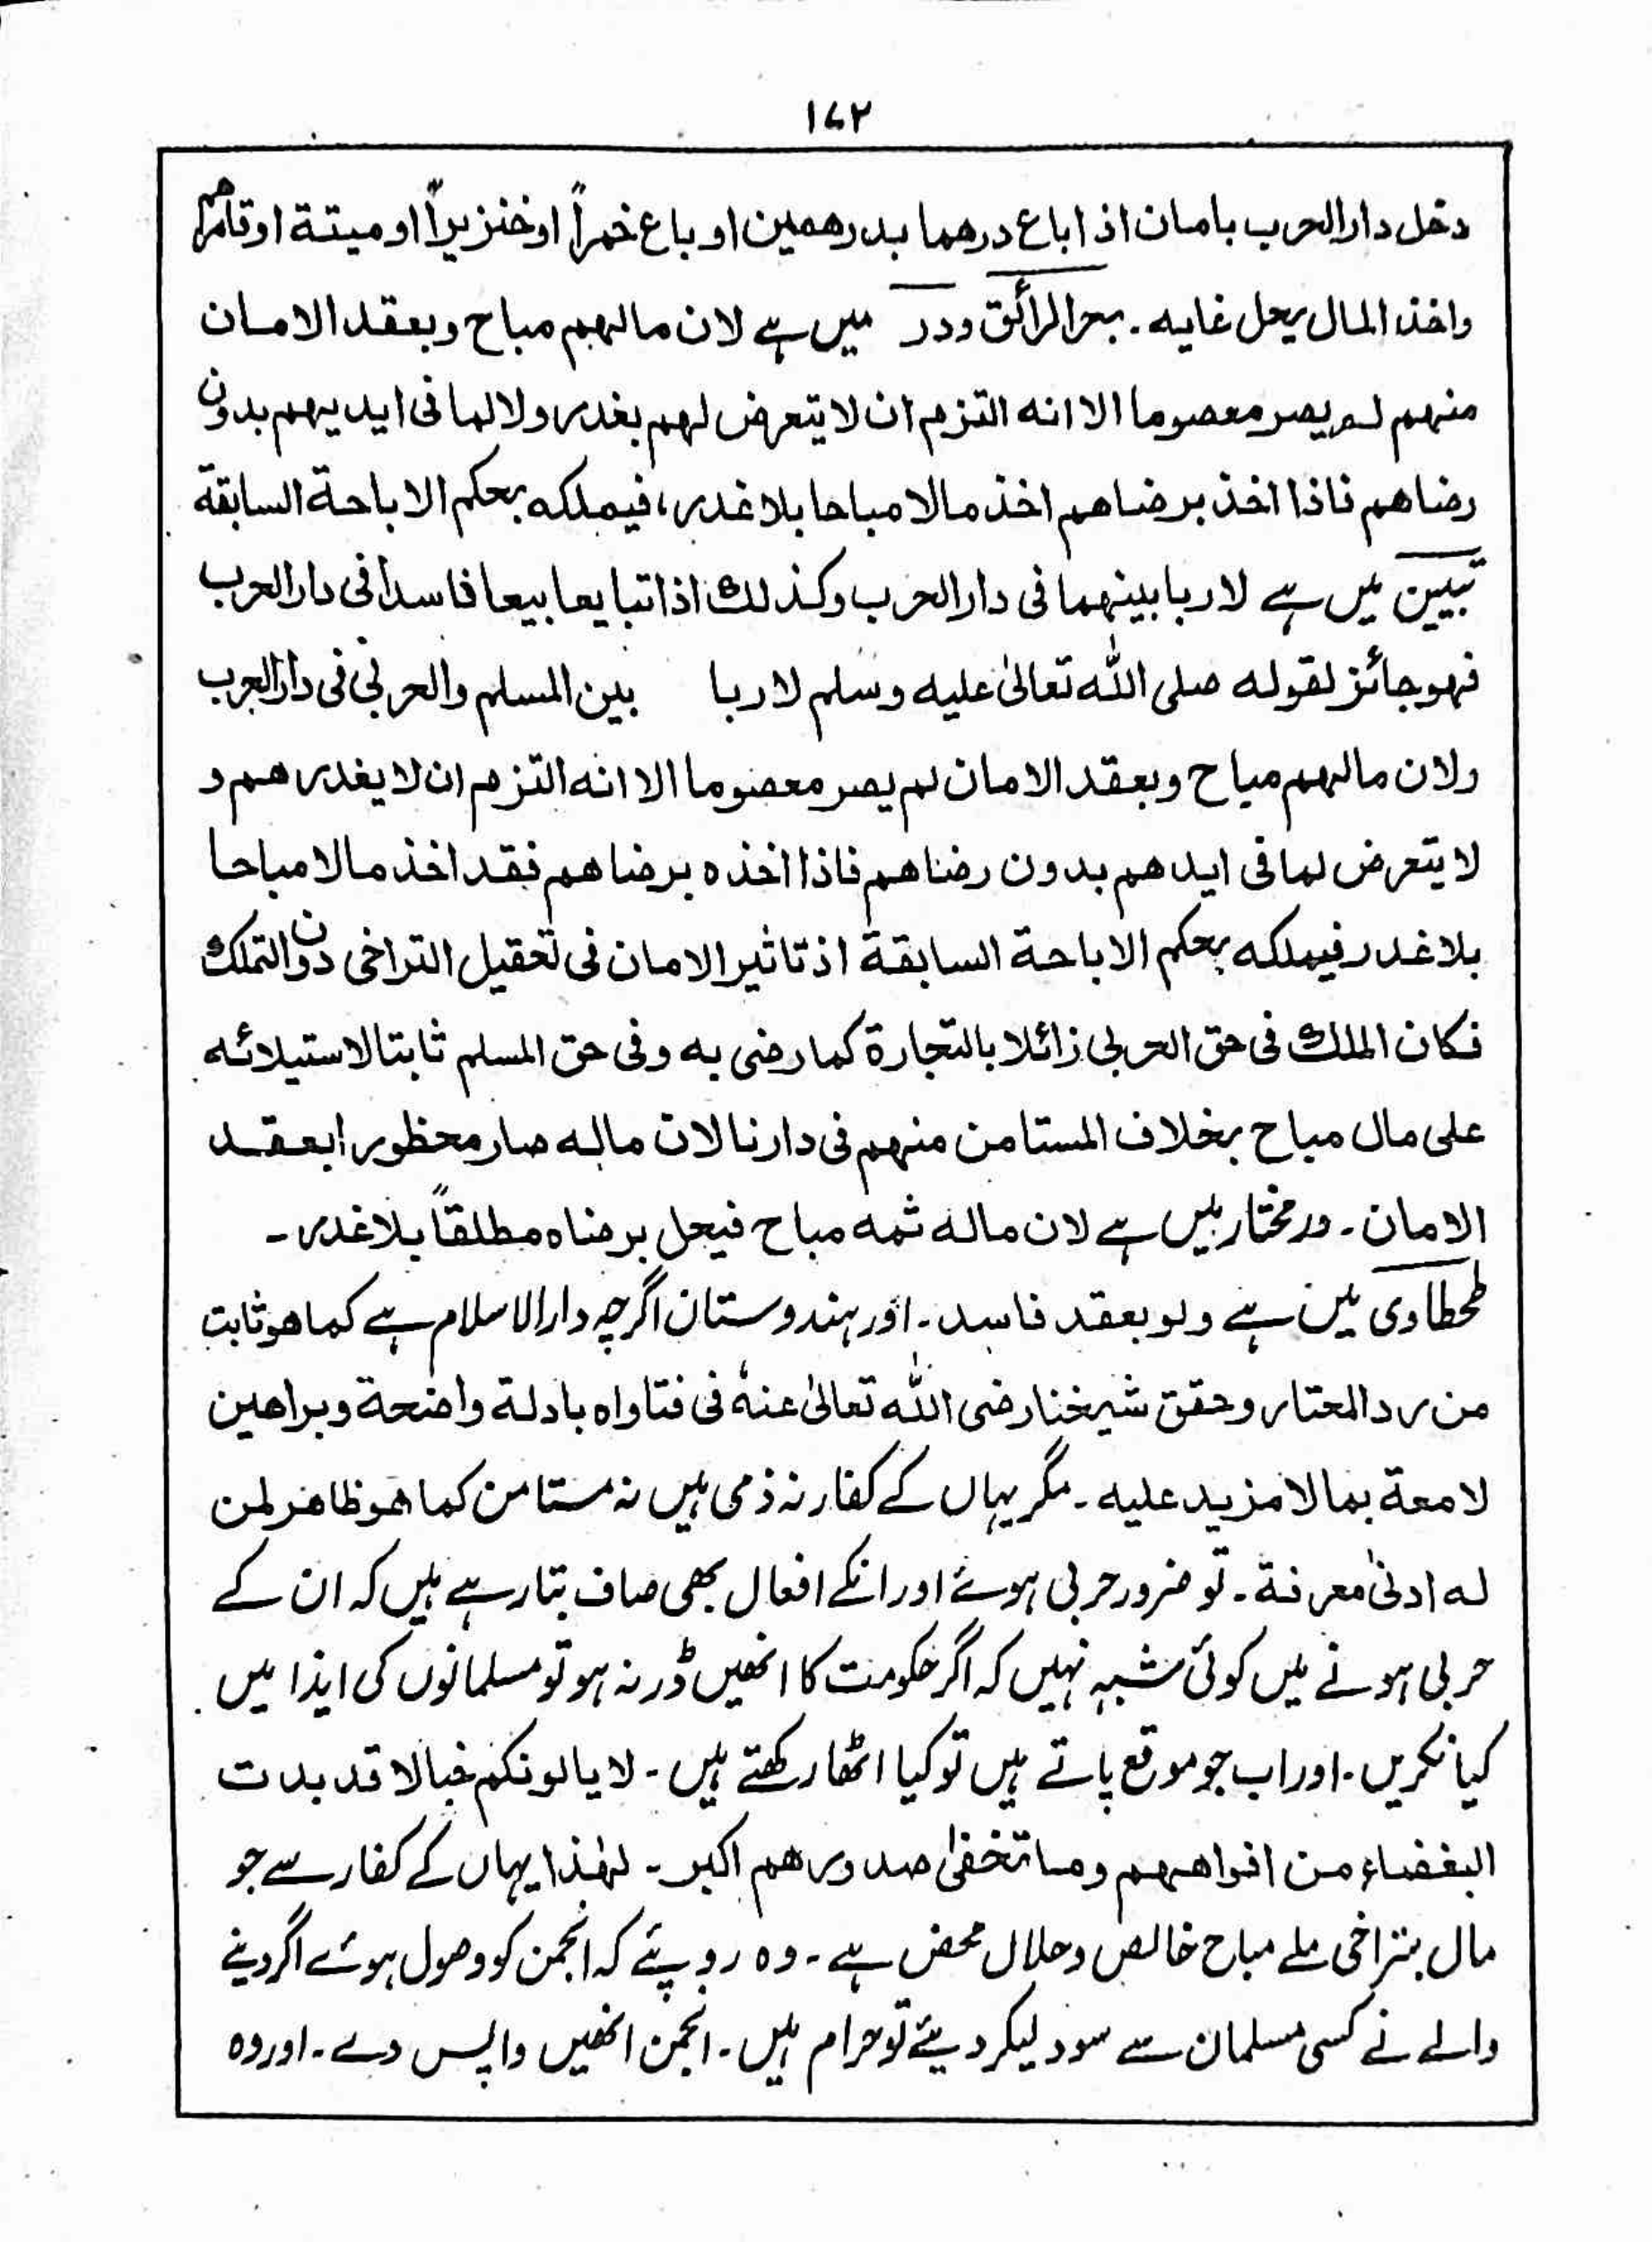 ۱۷۲
دخل دارالحرب بامان اذا باع درهما بدرهمین او باع خمراً او خنزیراً او میتة او قامرهم
واخذ المال یحل غایه ۔ بحرالرائق ودرر میں ہے لان مالہم مباح وبعقد الامان
منہم لم یصر معصوما الا انه التزم ان لا یتعرض لہم بغدر ولا لما فی ایدیہم بدون
رضاهم فاذا اخذ برضاهم اخذ مالا مباحا بلا غدر، فیملکه بحکم الاباحة السابقة
تبیین میں ہے لا ربا بینہما فی دارالحرب وکذلك اذا تبایعا بیعا فاسداً فی دارالحرب
فہو جائز لقوله صلی اللہ تعالیٰ علیه وسلم لا ربا بین المسلم والحربی فی دارالحرب
ولان مالہم مباح وبعقد الامان لم یصر معصوما الا انه التزم ان لا یغدرهم و
لا یتعرض لما فی ایدهم بدون رضاهم فاذا اخذه برضاهم فقد اخذ مالا مباحا
بلا غدر فیملکه بحکم الاباحة السابقة اذ تاثیر الامان فی تحقیل التراخی دون التملك
فکان الملك فی حق الحربی زائلا بالتجارة کما رضی به وفی حق المسلم ثابتا لاستیلائه
علی مال مباح بخلاف المستامن منہم فی دارنا لان ماله صار محظورا بعقد
الامان ۔ درمختار میں ہے لان ماله ثمه مباح فیحل برضاه مطلقاً بلا غدر ۔
طحطاوی میں ہے ولو بعقد فاسد ۔ اور ہندوستان اگرچہ دارالاسلام ہے کما هو ثابت
من ردالمحتار وحقق شیخنا رضی اللہ تعالیٰ عنه فی فتاواه بادلة واضحة وبراهین
لامعة بما لا مزید علیه ۔ مگر یہاں کے کفار نہ ذمی ہیں نہ مستامن کما هو ظاهر لمن
له ادنیٰ معرفة ۔ تو ضرور حربی ہوئے اور انکے افعال بھی صاف بتا رہے ہیں کہ ان کے
حربی ہونے میں کوئی شبہ نہیں کہ اگر حکومت کا انھیں ڈر نہ ہو تو مسلمانوں کی ایذا میں
کیا نکریں ۔ اور اب جو موقع پاتے ہیں تو کیا اٹھا رکھتے ہیں ۔ لا یالونکم خبالا قد بدت
البغضاء من افواههم وما تخفیٰ صدورهم اکبر ۔ لہٰذا یہاں کے کفار سے جو
مال بتراضی ملے مباح خالص وحلال محض ہے ۔ وہ روپئے کہ انجمن کو وصول ہوئے اگر دینے
والے نے کسی مسلمان سے سود لیکر دیئے تو حرام ہیں ۔ انجمن انھیں واپس دے ۔ اور وہ